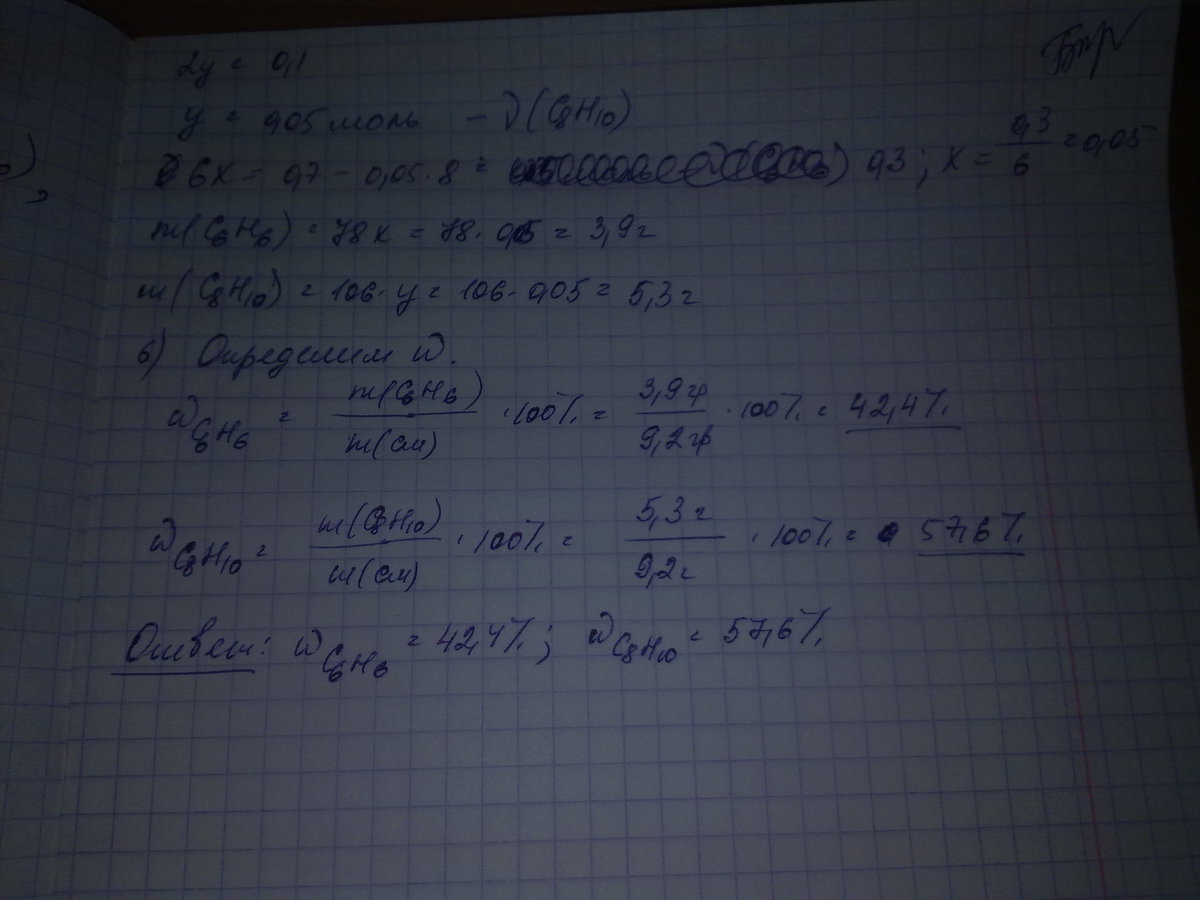 2y = 0,1
y = 0,05 моль – ν(C₈H₁₀)
6x = 0,7 – 0,05·8 = 0,3; x = 0,3/6 = 0,05
m(C₆H₆) = 78x = 78·0,05 = 3,9 г
m(C₈H₁₀) = 106·y = 106·0,05 = 5,3 г
6) Определим ω.
ω C₆H₆ = m(C₆H₆)/m(см) ·100% = 3,9гр/9,2гр ·100% = 42,4%
ω C₈H₁₀ = m(C₈H₁₀)/m(см) ·100% = 5,3г/9,2г ·100% = 57,6%
Ответ: ω C₆H₆ = 42,4%; ω C₈H₁₀ = 57,6%